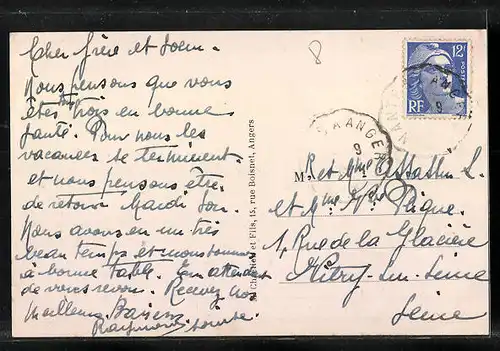 Cher frère et Soeur.
Nous pensons que vous
êtes trois en bonne
santé. Pour nous les
vacances se terminent
et nous pensons être
de retour Mardi Soir.
Nous avons eu un très
beau temps et nous sommes
à bonne table. En attendant
de vous revoir. Recevez nos
Meilleurs Baisers
Raymond
8
12F
POSTES
RF
ANGERS
9
A ANGERS
9
et Fils, 15, rue Boisnet, Angers
M. et Mme L.
et Mme
1, Rue de la Glacière
Vitry-sur-Seine
Seine